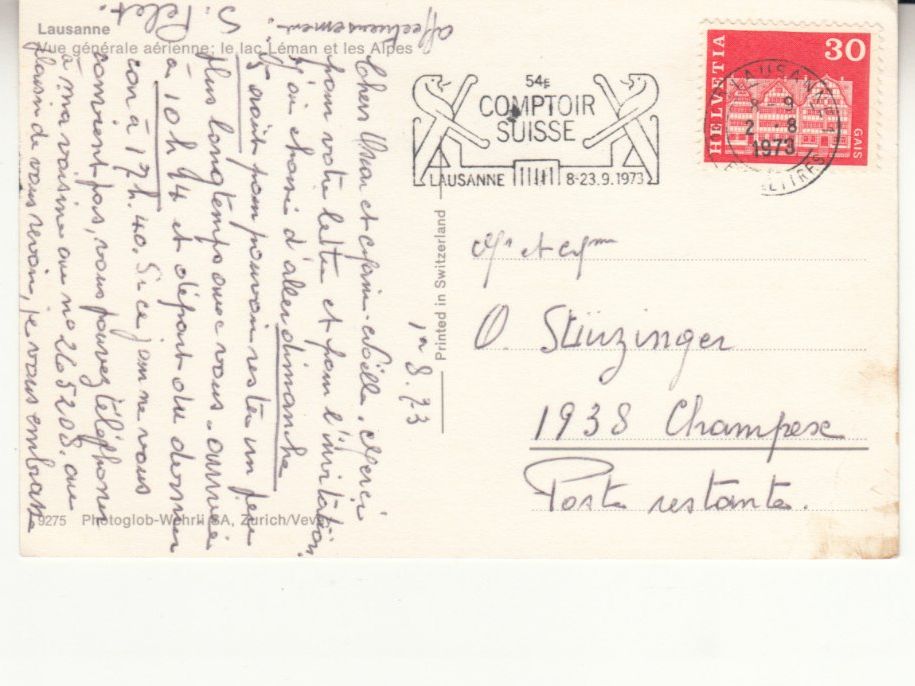 Lausanne
Vue générale aérienne: le lac Léman et les Alpes
1er 8.73
Chers Omar et Marie-Noëlle, Merci
pour votre lettre et pour l'invitation.
J'ai choisi d'aller dimanche
le août pour pouvoir rester un peu
plus longtemps avec vous. arrivée
à 10 h 14 et départ du dernier
car à 17 h. 40. Si ce jour ne vous
convient pas, vous pouvez téléphoner
à ma voisine au no 26 52 08. au
plaisir de vous revoir, je vous embrasse
affectueusement.
S. Pelet.
9275 Photoglob-Wehrli SA, Zurich/Vevey
Printed in Switzerland
54E
COMPTOIR
SUISSE
LAUSANNE 8-23.9.1973
HELVETIA
30
GAIS
LAUSANNE
8-9
2.-8
1973
LETTRES
Mr et Mme
O. Stünzinger
1938 Champex
Poste restante.